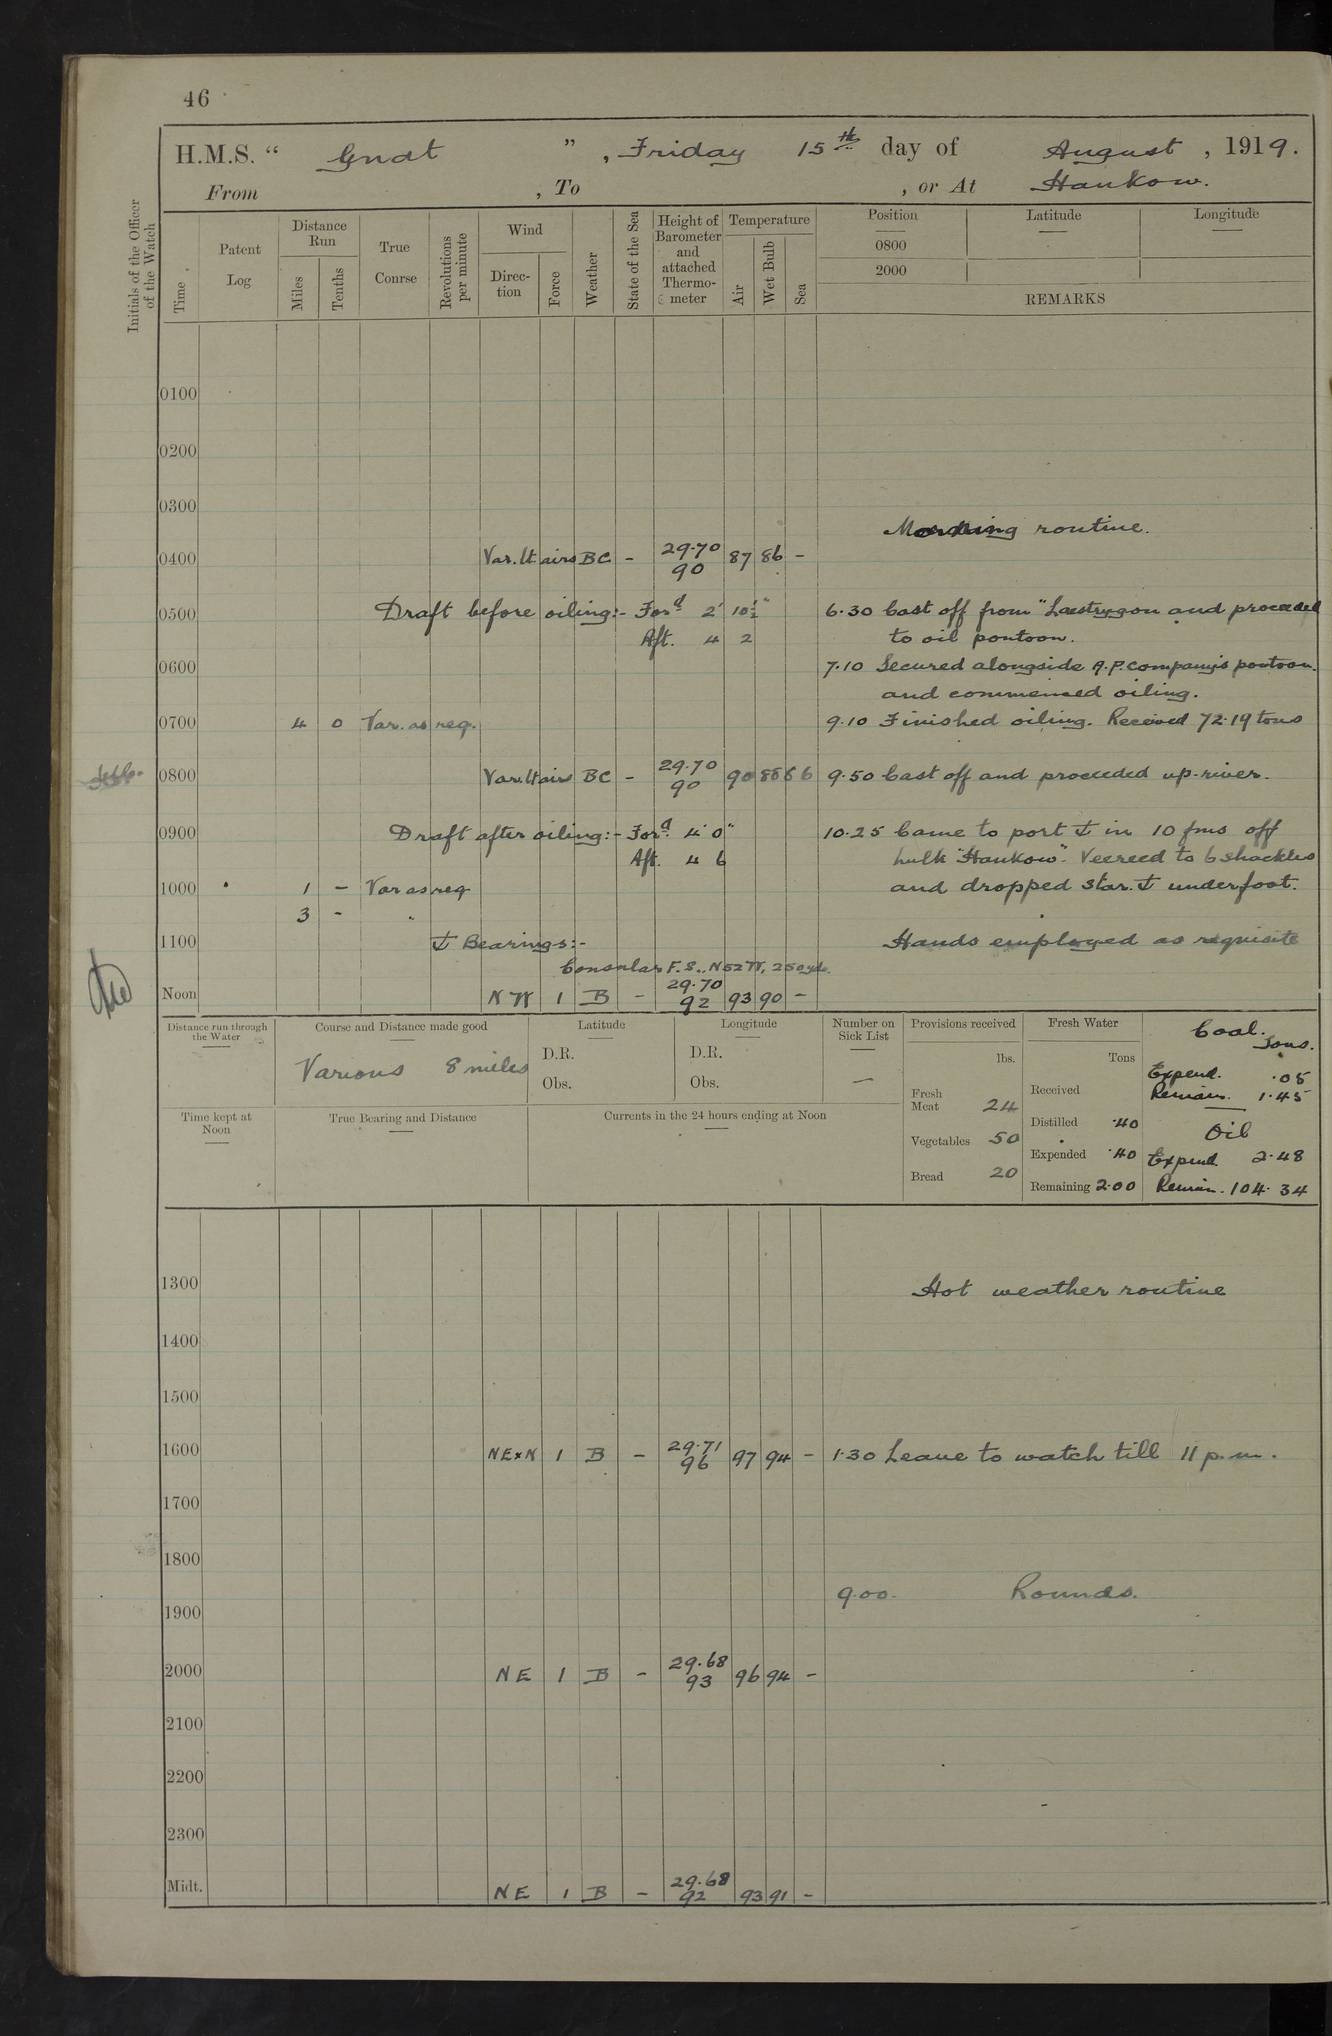 46
H.M.S. “ Gnat ”, Friday 15th day of August, 1919.
From , To , or At Hankow.
Initials of the Officer of the Watch
Time
Patent Log
Distance Run
Miles
Tenths
True Course
Revolutions per minute
Wind
Direction
Force
Weather
State of the Sea
Height of Barometer and attached Thermometer
Temperature
Air
Wet Bulb
Sea
Position Latitude Longitude
0800
2000
REMARKS
0100
0200
0300
Morning routine.
0400 Var. lt. airs BC - 29.70 87 86 -
90
0500 Draft before oiling:- Ford 2' 10½" 6.30 Cast off from "Laestrygon and proceeded
Aft. 4 2 to oil pontoon.
0600 7.10 Secured alongside A.P. Company's pontoon
and commenced oiling.
0700 4 0 Var. as req. 9.10 Finished oiling. Received 72.19 tons
0800 Var. lt airs BC - 29.70 90 88 86 9.50 Cast off and proceeded up-river.
90
0900 Draft after oiling:- Ford 4' 0" 10.25 Came to port ⚓ in 10 fms off
Aft. 4 6 hulk "Hankow". Veered to 6 shackles
1000 1 - Var as req and dropped star. ⚓ underfoot.
3 - "
1100 ⚓ Bearings:- Hands employed as requisite
Consular F.S., N52W, 250yds.
Noon NW 1 B - 29.70 93 90 -
92
Distance run through the Water
Course and Distance made good
Various 8 miles
Latitude
D.R.
Obs.
Longitude
D.R.
Obs.
Number on Sick List
—
Provisions received
lbs.
Fresh Meat 24
Vegetables 50
Bread 20
Fresh Water
Tons
Received
Distilled .40
Expended .40
Remaining 2.00
Coal.
Tons.
Expend. .05
Remain. 1.45
Oil
Expend. 2.48
Remain. 104.34
Time kept at Noon
True Bearing and Distance
Currents in the 24 hours ending at Noon
1300 Hot weather routine
1400
1500
1600 NExN 1 B - 29.71 97 94 - 1.30 Leave to watch till 11 p.m.
96
1700
1800
9.00. Rounds.
1900
2000 NE 1 B - 29.68 96 94 -
93
2100
2200
2300
Midt. NE 1 B - 29.68 93 91 -
92